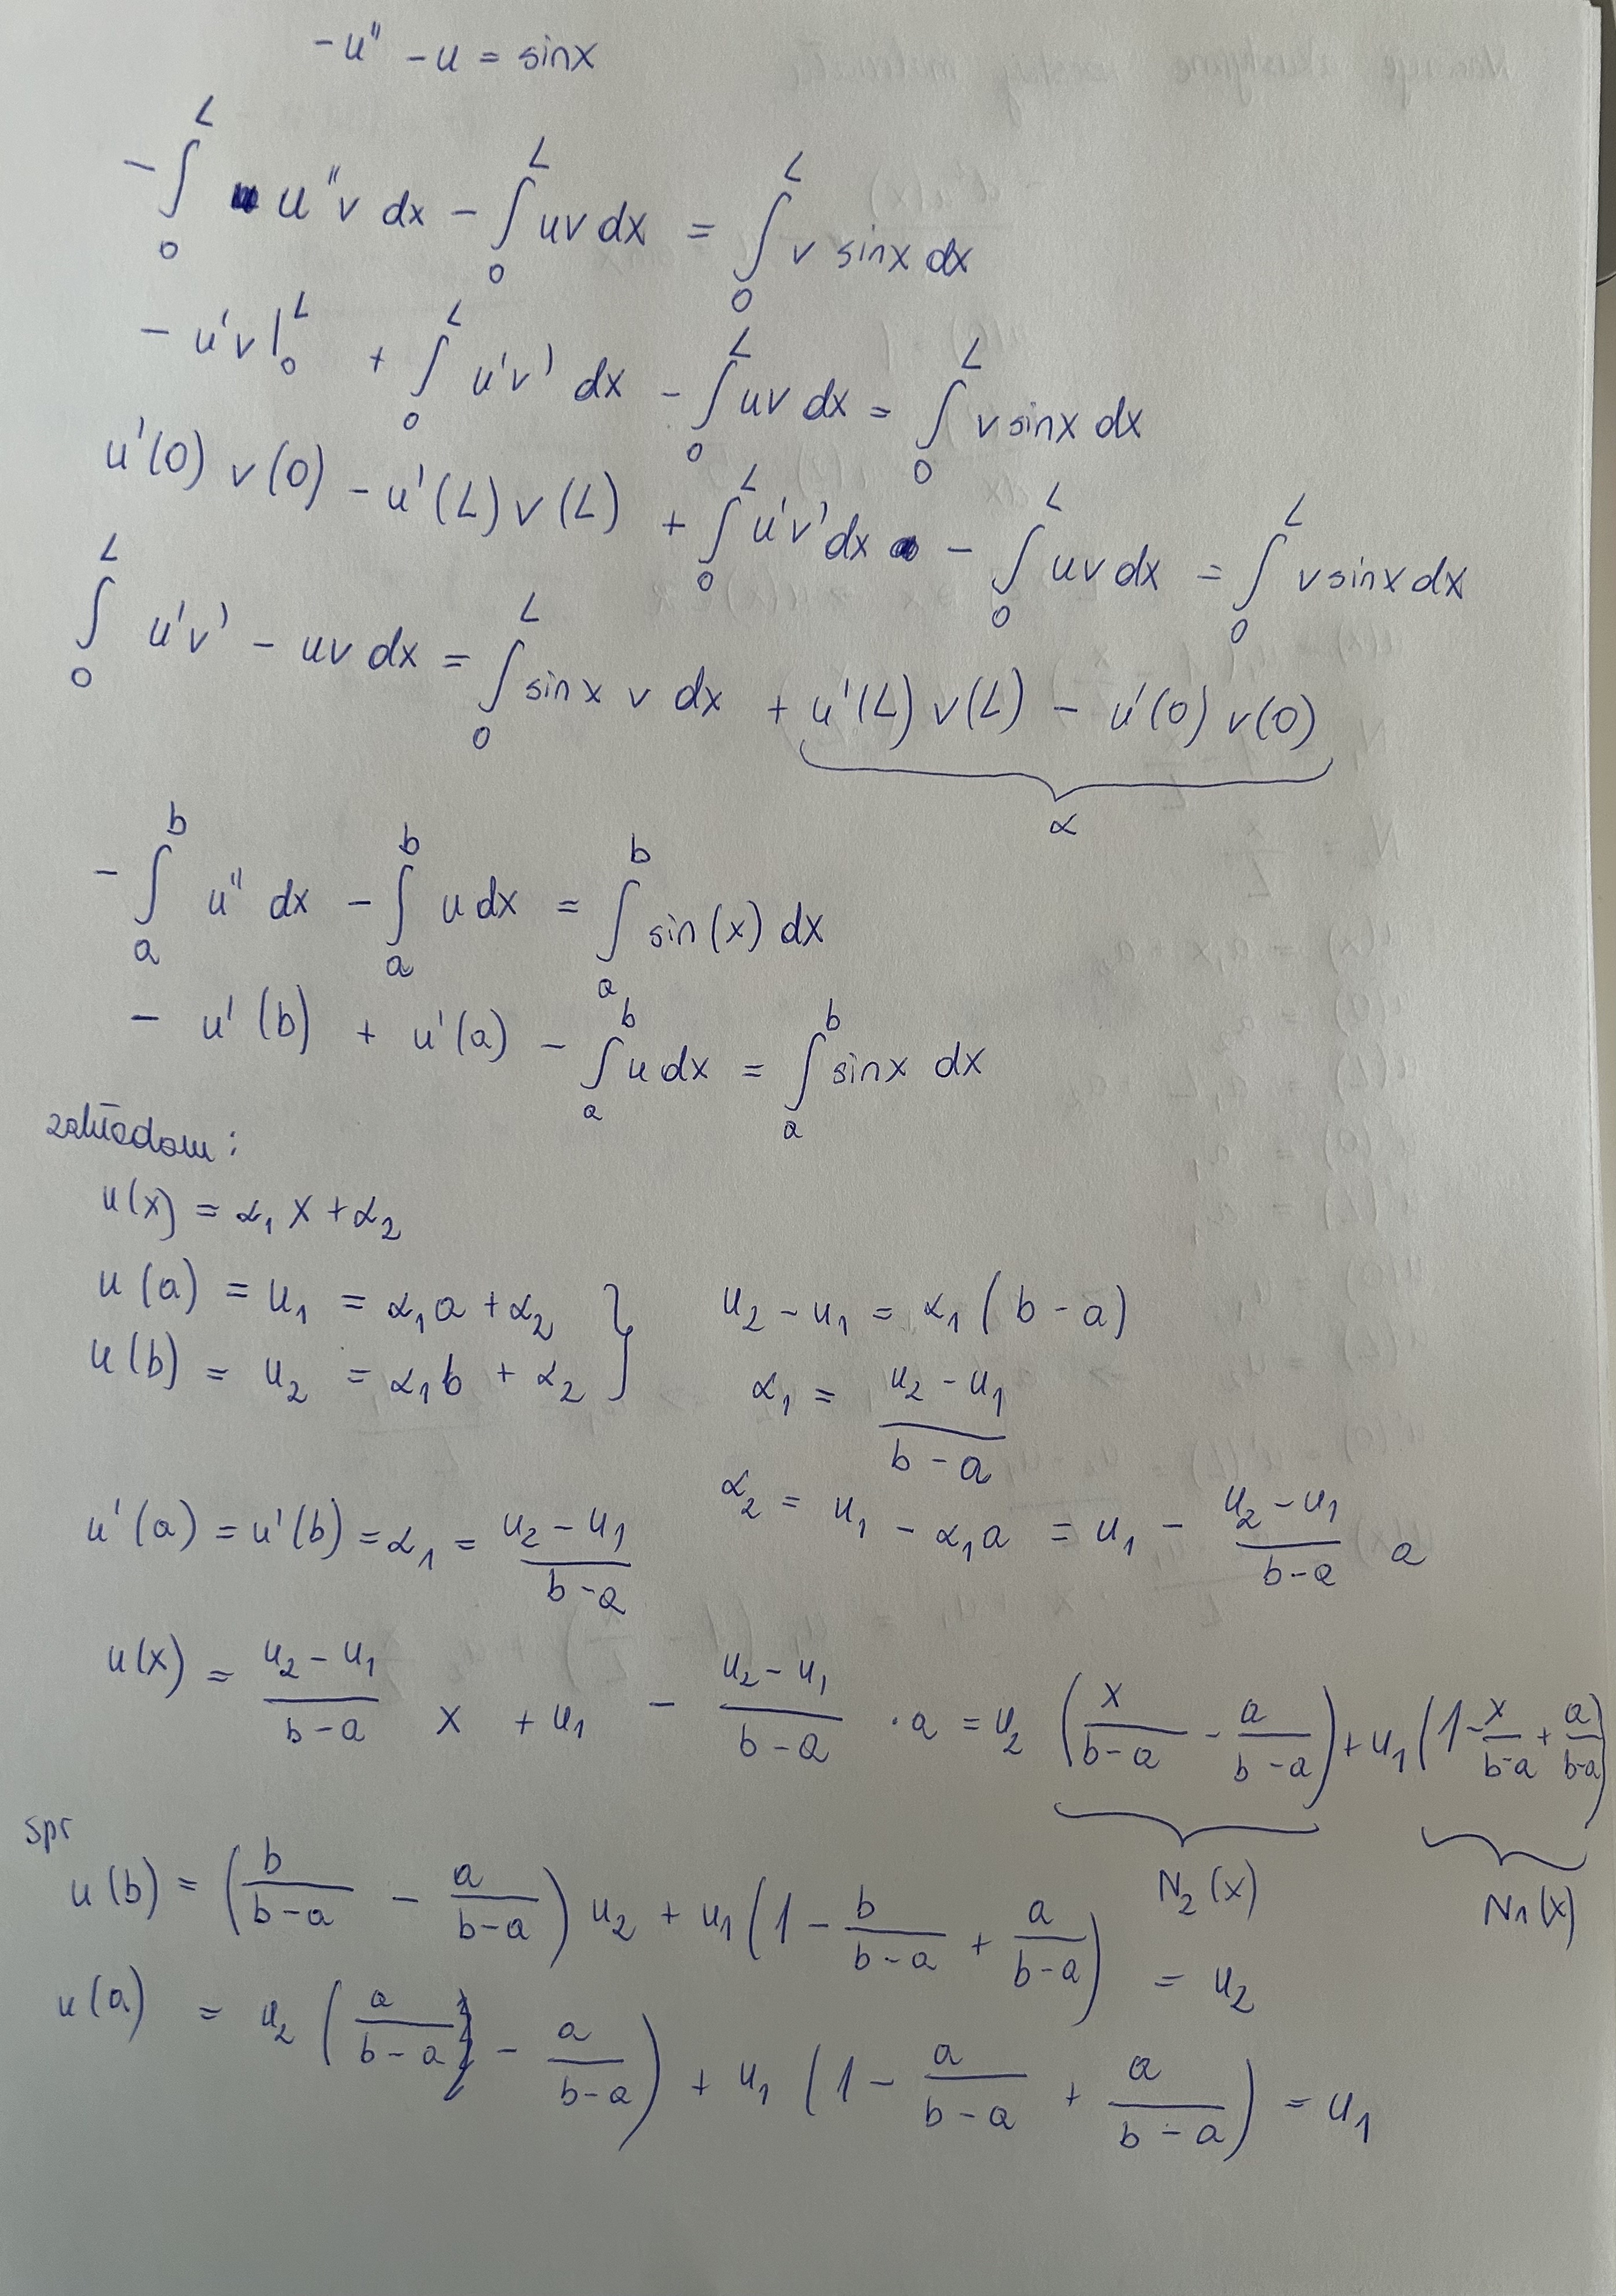 -u'' - u = sinx
-∫₀ᴸ u''v dx - ∫₀ᴸ uv dx = ∫₀ᴸ v sinx dx
- u'v |₀ᴸ + ∫₀ᴸ u'v' dx - ∫₀ᴸ uv dx = ∫₀ᴸ v sinx dx
u'(0) v(0) - u'(L) v(L) + ∫₀ᴸ u'v' dx - ∫₀ᴸ uv dx = ∫₀ᴸ v sinx dx
∫₀ᴸ u'v' - uv dx = ∫₀ᴸ sinx v dx + u'(L) v(L) - u'(0) v(0)
α
-∫_a^b u'' dx - ∫_a^b u dx = ∫_a^b sin(x) dx
- u'(b) + u'(a) - ∫_a^b u dx = ∫_a^b sinx dx
u(x) = α₁ x + α₂
u(a) = u₁ = α₁a + α₂ } u₂ - u₁ = α₁ (b - a)
u(b) = u₂ = α₁b + α₂ } α₁ = (u₂ - u₁)/(b - a)
u'(a) = u'(b) = α₁ = (u₂ - u₁)/(b - a) α₂ = u₁ - α₁a = u₁ - (u₂ - u₁)/(b - a) a
u(x) = (u₂ - u₁)/(b - a) x + u₁ - (u₂ - u₁)/(b - a) · a = u₂ (x/(b - a) - a/(b - a)) + u₁ (1 - x/(b - a) + a/(b - a))
N₂(x) N₁(x)
spr
u(b) = (b/(b - a) - a/(b - a)) u₂ + u₁ (1 - b/(b - a) + a/(b - a)) = u₂
u(a) = u₂ (a/(b - a) - a/(b - a)) + u₁ (1 - a/(b - a) + a/(b - a)) = u₁